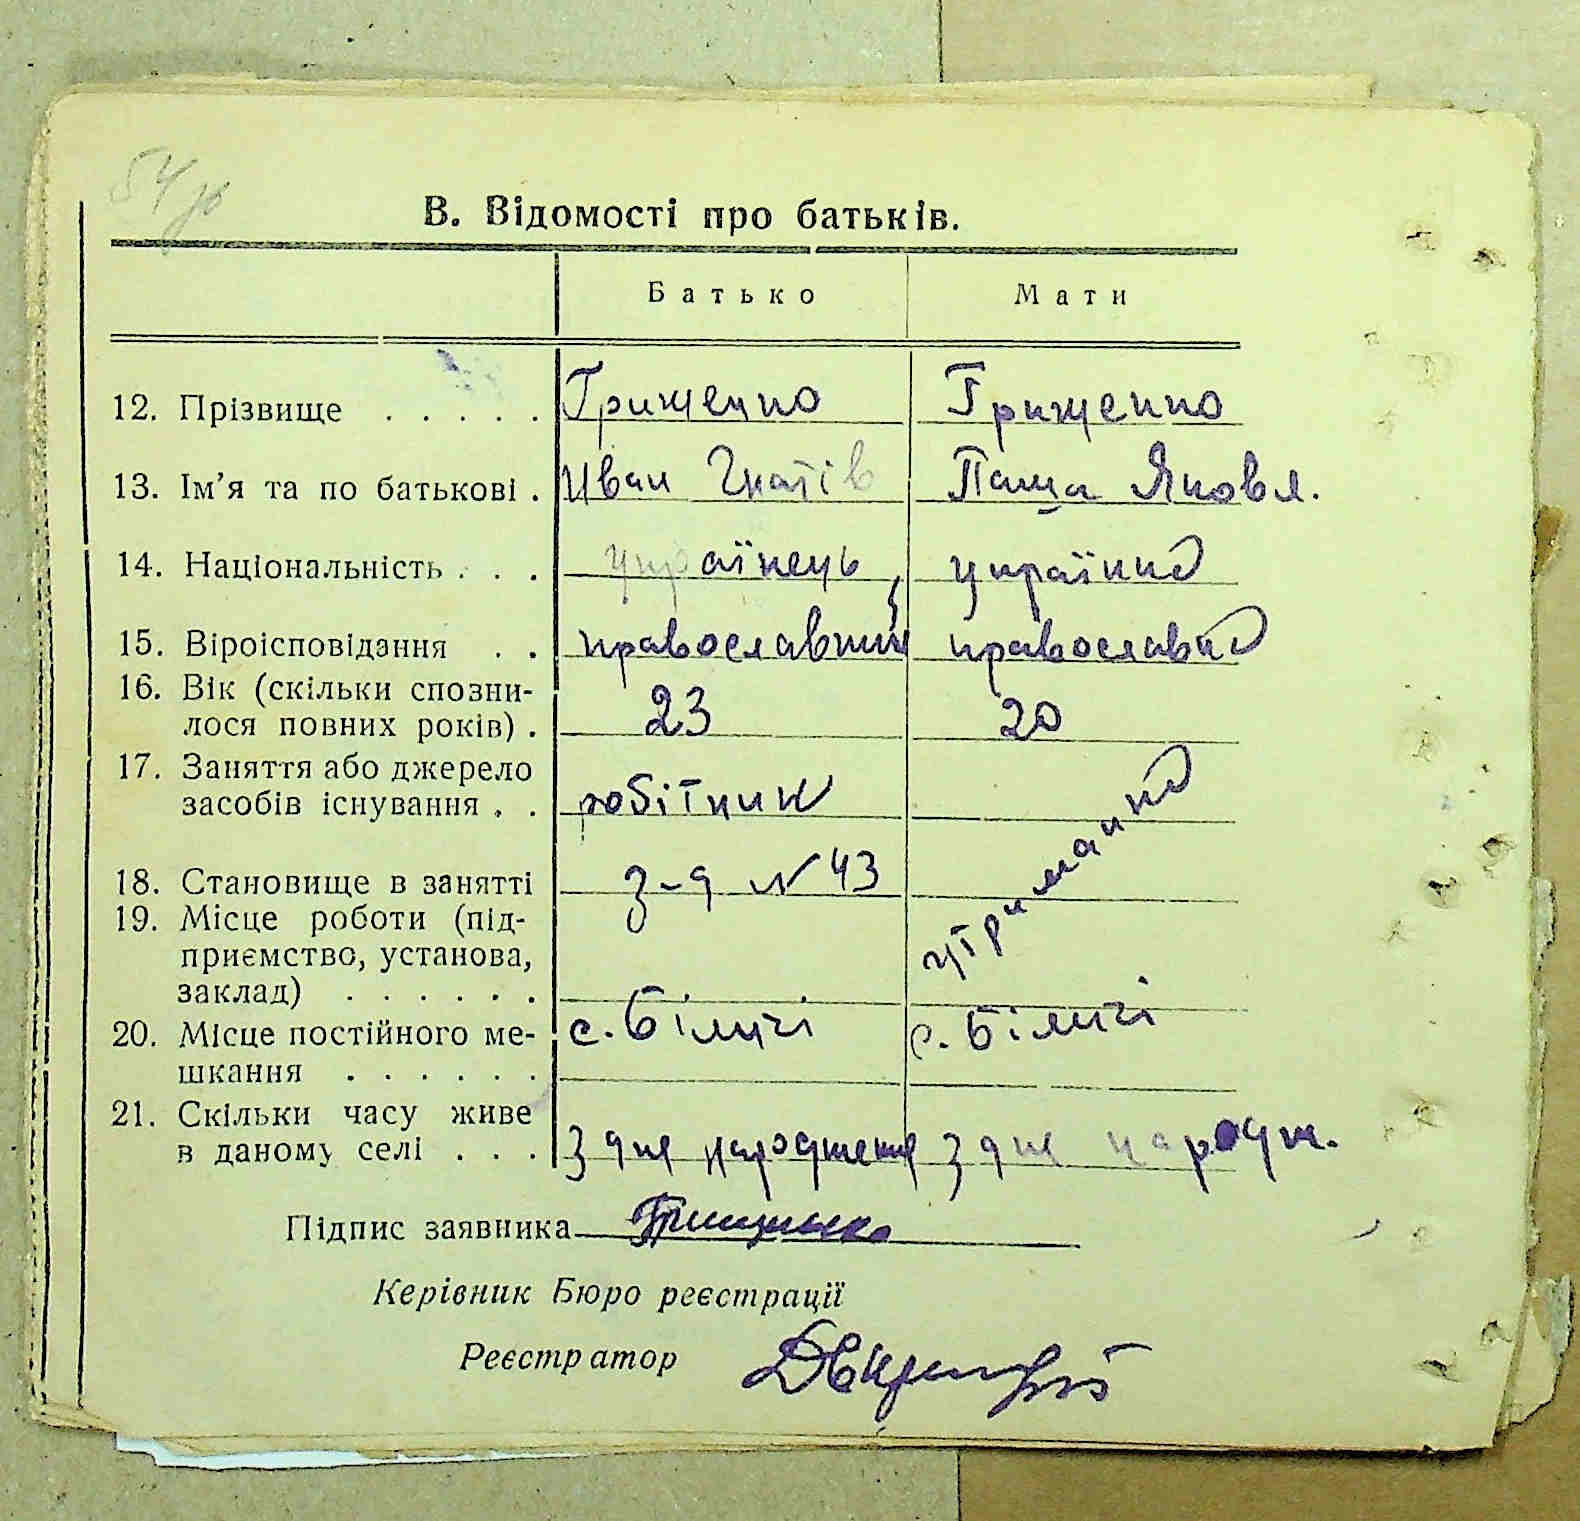 54 зв
В. Відомості про батьків.
Батько Мати
12. Прізвище . . . . . Грищенко Грищенко
13. Ім’я та по батькові . Иван Гнатів Паша Яковл.
14. Національність . . . українець українка
15. Віроісповідання . . православний православна
16. Вік (скільки спозни-
лося повних років) . 23 20
17. Заняття або джерело
засобів існування . . робітник утриманка
18. Становище в занятті з-д № 43
19. Місце роботи (під-
приємство, установа,
заклад) . . . . . .
20. Місце постійного ме- с. Біличі с. Біличі
шкання . . . . . .
21. Скільки часу живе
в даному селі . . . з дня народження з дня народж.
Підпис заявника Грищенко
Керівник Бюро реєстрації
Реєстратор